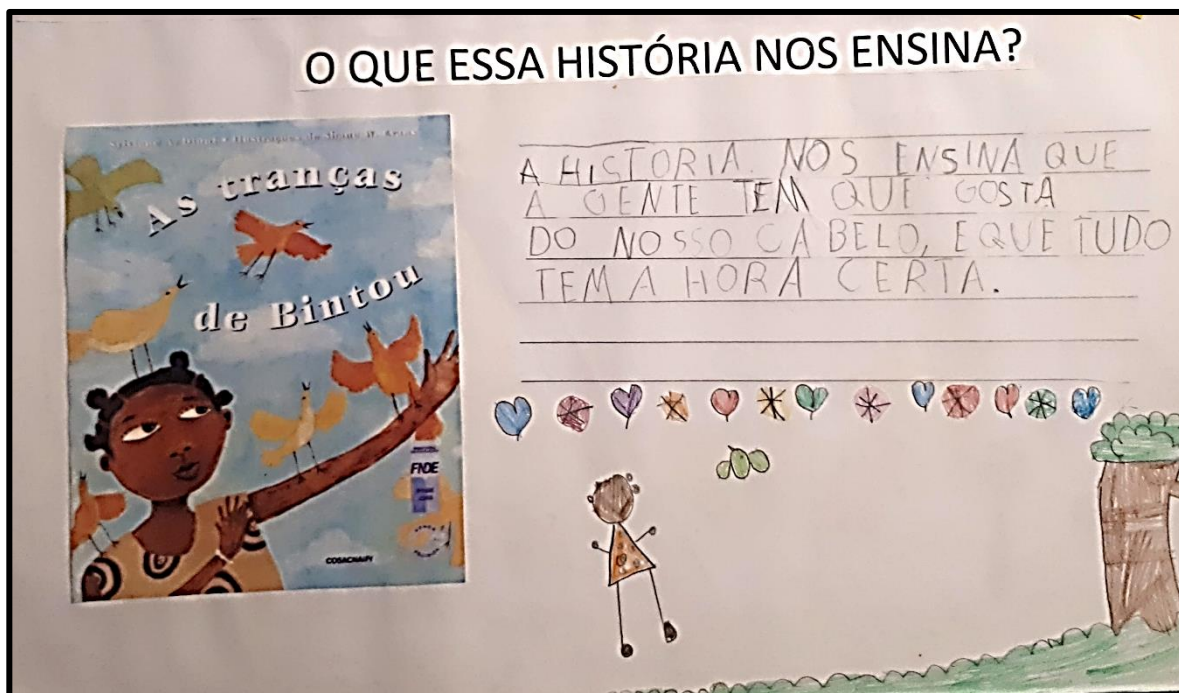 O QUE ESSA HISTÓRIA NOS ENSINA?
As tranças
de Bintou
FNDE
COSACNAIFY
A HISTORIA NOS ENSINA QUE
A GENTE TEM QUE GOSTA
DO NOSSO CABELO, E QUE TUDO
TEM A HORA CERTA.